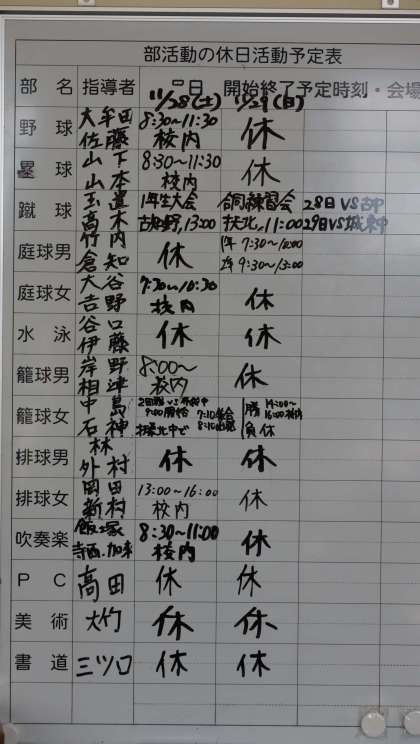 部活動の休日活動予定表
部 名 指導者 月日 開始終了予定時刻・会場
11/28(土) 11/29(日)
野 球 大牟田 佐藤 8:30~11:30 校内 休
塁 球 山下 山本 8:30~11:30 校内 休
蹴 球 高木 1年生大会 13:00 合同練習会 扶北 11:00 28日VS 29日VS城東中
庭球男 竹内 倉知 休 1年 7:30~10:00 2年 9:30~13:00
庭球女 大谷 吉野 7:30~10:30 校内 休
水 泳 谷口 伊藤 休 休
籠球男 岸野 相津 8:00~ 校内 休
籠球女 中島 石神 2回戦 VS 9:00開始 7:10集会 8:10出発 扶桑北中で 勝 14:00~16:00校内 負 休
排球男 林 外村 休 休
排球女 岡田 新村 13:00~16:00 校内 休
吹奏楽 飯塚 寺西.加来 8:30~11:00 校内 休
P C 高田 休 休
美 術 大竹 休 休
書 道 三ツ口 休 休